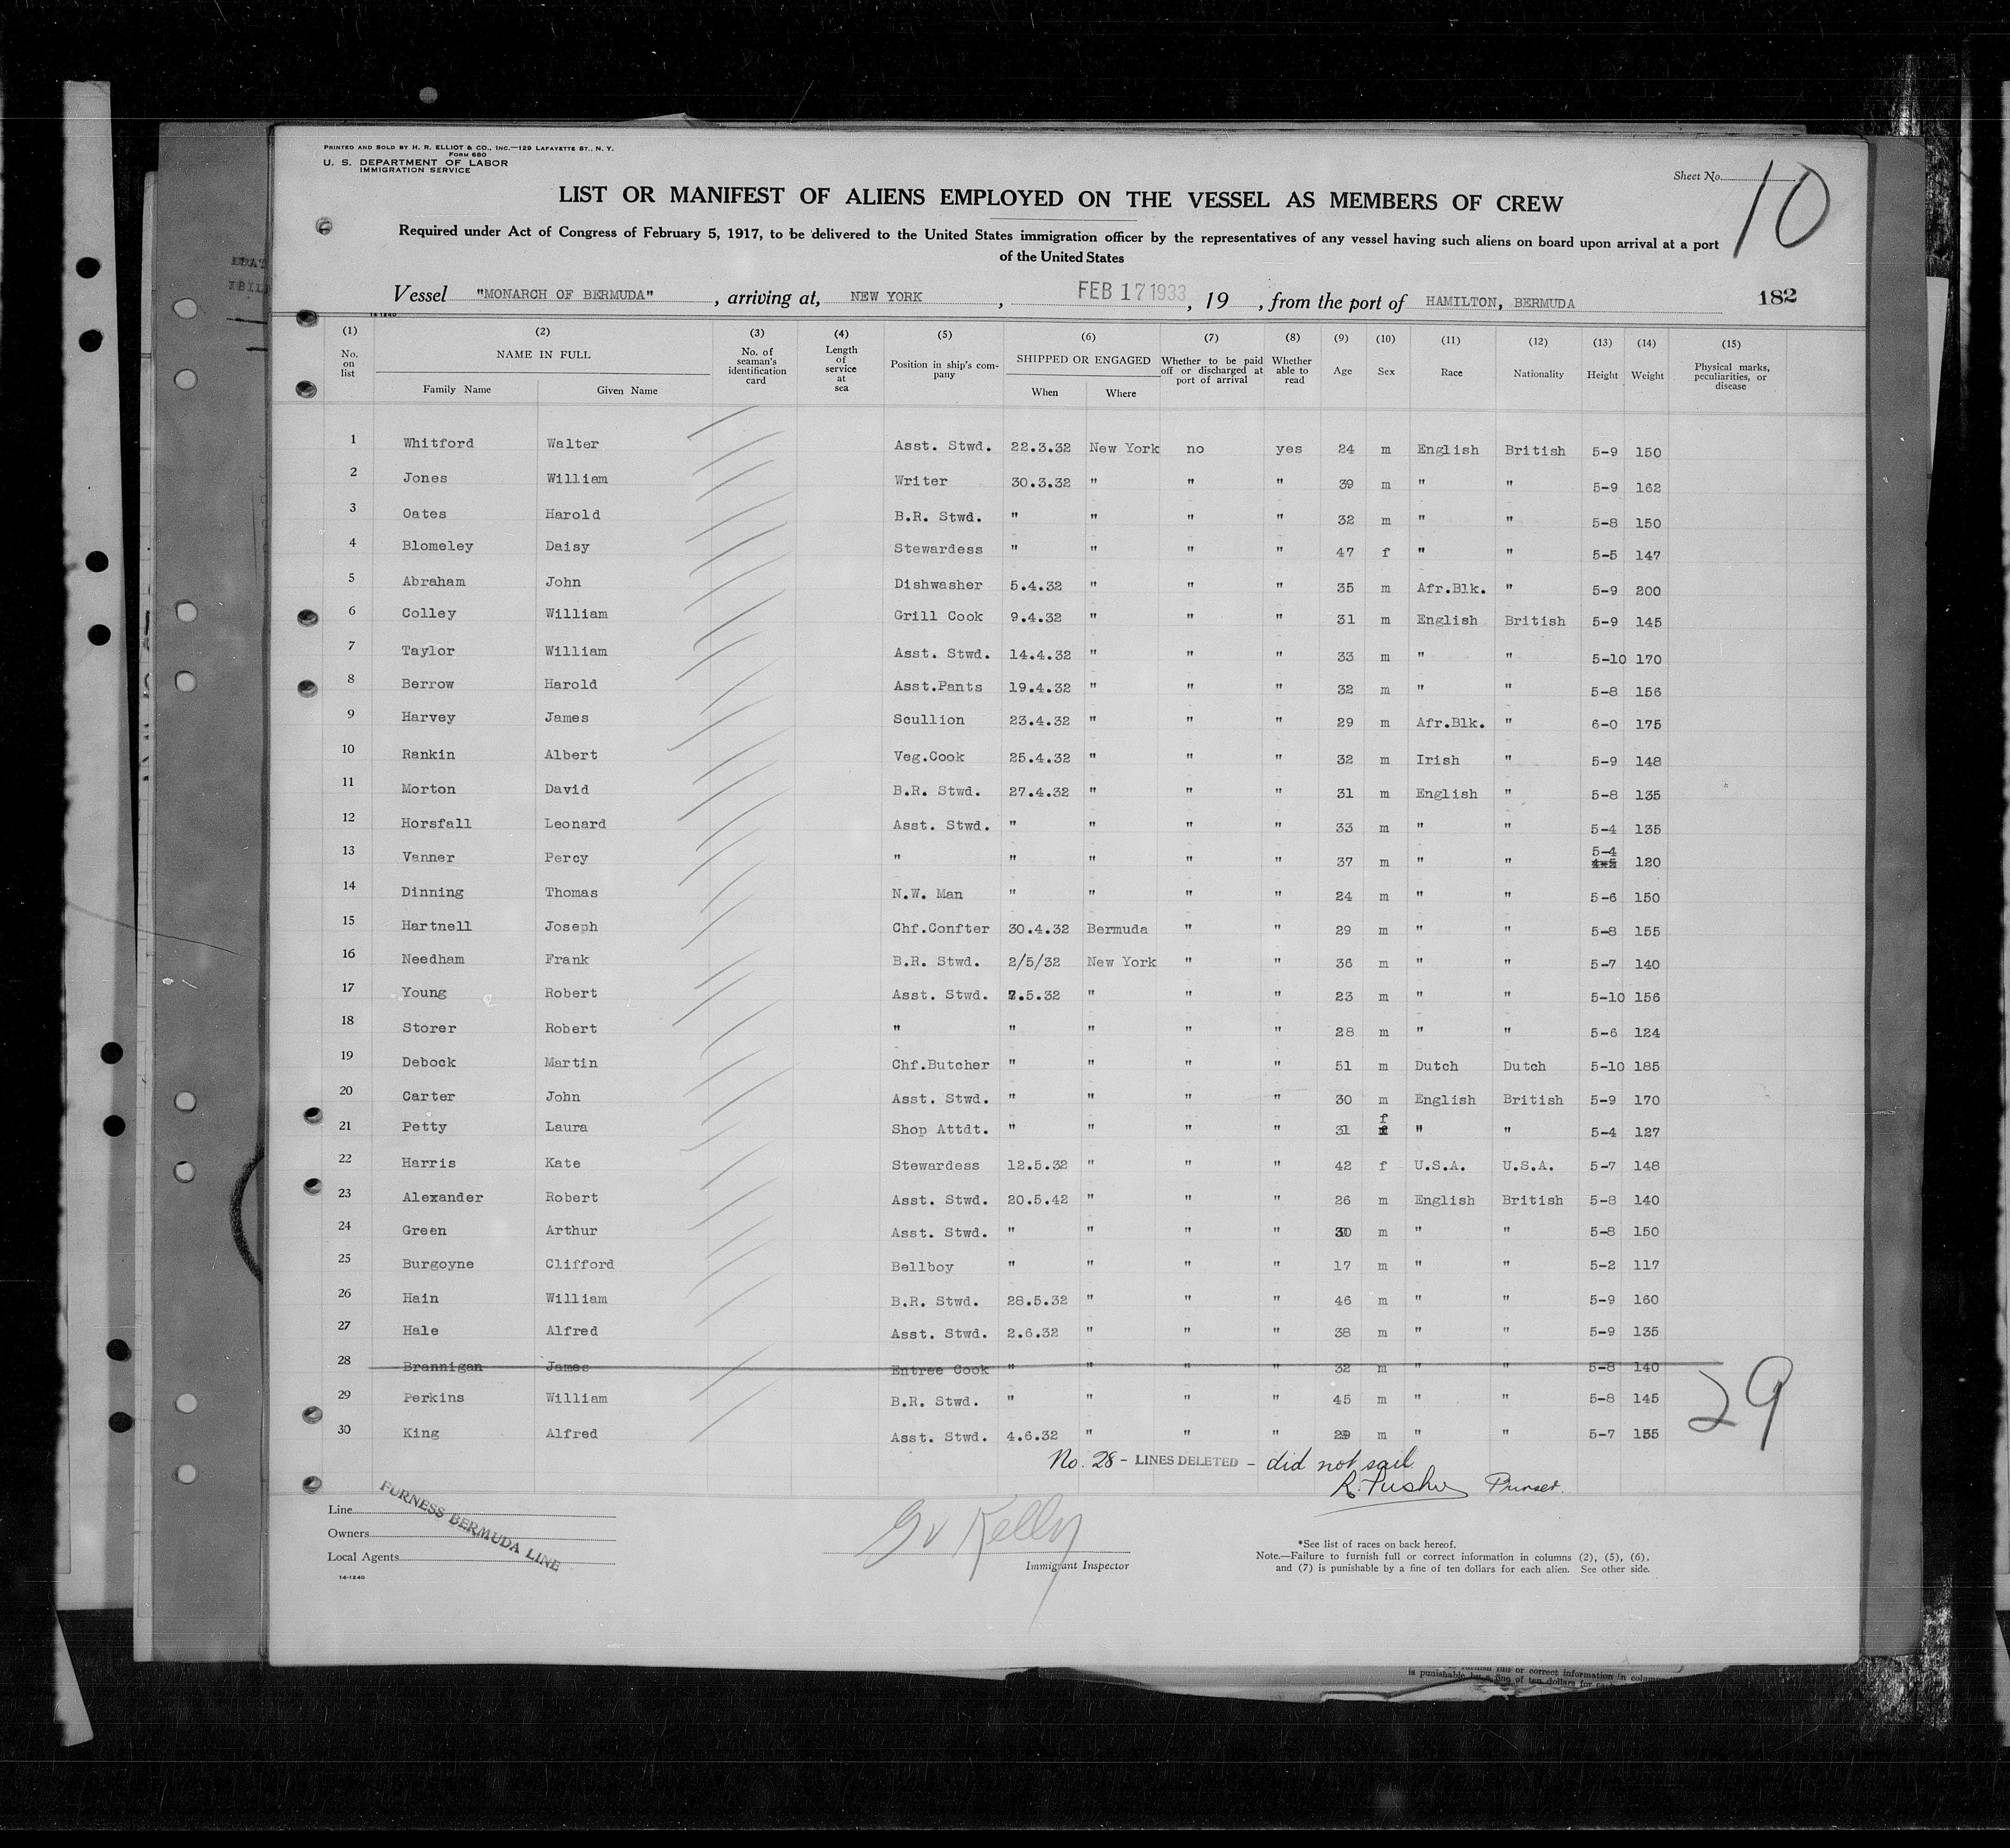 PRINTED AND SOLD BY H. R. ELLIOT & CO., INC.—129 LAFAYETTE ST., N. Y.
FORM 680
U. S. DEPARTMENT OF LABOR
IMMIGRATION SERVICE
Sheet No. 10
LIST OR MANIFEST OF ALIENS EMPLOYED ON THE VESSEL AS MEMBERS OF CREW
Required under Act of Congress of February 5, 1917, to be delivered to the United States immigration officer by the representatives of any vessel having such aliens on board upon arrival at a port
of the United States
Vessel "MONARCH OF BERMUDA", arriving at, NEW YORK, FEB 17 1933, 19 , from the port of HAMILTON, BERMUDA 182
14-1240
(1) (2) (3) (4) (5) (6) (7) (8) (9) (10) (11) (12) (13) (14) (15)
No. on list NAME IN FULL Family Name Given Name No. of seaman's identification card Length of service at sea Position in ship's company SHIPPED OR ENGAGED When Where Whether to be paid off or discharged at port of arrival Whether able to read Age Sex Race Nationality Height Weight Physical marks, peculiarities, or disease
1 Whitford Walter Asst. Stwd. 22.3.32 New York no yes 24 m English British 5-9 150
2 Jones William Writer 30.3.32 " " " 39 m " " 5-9 162
3 Oates Harold B.R. Stwd. " " " " 32 m " " 5-8 150
4 Blomeley Daisy Stewardess " " " " 47 f " " 5-5 147
5 Abraham John Dishwasher 5.4.32 " " " 35 m Afr.Blk. " 5-9 200
6 Colley William Grill Cook 9.4.32 " " " 31 m English British 5-9 145
7 Taylor William Asst. Stwd. 14.4.32 " " " 33 m " " 5-10 170
8 Berrow Harold Asst.Pants 19.4.32 " " " 32 m " " 5-8 156
9 Harvey James Scullion 23.4.32 " " " 29 m Afr.Blk. " 6-0 175
10 Rankin Albert Veg.Cook 25.4.32 " " " 32 m Irish " 5-9 148
11 Morton David B.R. Stwd. 27.4.32 " " " 31 m English " 5-8 135
12 Horsfall Leonard Asst. Stwd. " " " " 33 m " " 5-4 135
13 Vanner Percy " " " " " 37 m " " 5-4 120
14 Dinning Thomas N.W. Man " " " " 24 m " " 5-6 150
15 Hartnell Joseph Chf.Confter 30.4.32 Bermuda " " 29 m " " 5-8 155
16 Needham Frank B.R. Stwd. 2/5/32 New York " " 36 m " " 5-7 140
17 Young Robert Asst. Stwd. .5.32 " " " 23 m " " 5-10 156
18 Storer Robert " " " " " 28 m " " 5-6 124
19 Debock Martin Chf.Butcher " " " " 51 m Dutch Dutch 5-10 185
20 Carter John Asst. Stwd. " " " " 30 m English British 5-9 170
21 Petty Laura Shop Attdt. " " " " 31 f " " 5-4 127
22 Harris Kate Stewardess 12.5.32 " " " 42 f U.S.A. U.S.A. 5-7 148
23 Alexander Robert Asst. Stwd. 20.5.42 " " " 26 m English British 5-8 140
24 Green Arthur Asst. Stwd. " " " " 30 m " " 5-8 150
25 Burgoyne Clifford Bellboy " " " " 17 m " " 5-2 117
26 Hain William B.R. Stwd. 28.5.32 " " " 46 m " " 5-9 160
27 Hale Alfred Asst. Stwd. 2.6.32 " " " 38 m " " 5-9 135
28 Brannigan James Entree Cook " " " " 32 m " " 5-8 140
29 Perkins William B.R. Stwd. " " " " 45 m " " 5-8 145
30 King Alfred Asst. Stwd. 4.6.32 " " " 29 m " " 5-7 155
29
No. 28 - LINES DELETED - did not sail
Purser.
Line
Owners
Local Agents
FURNESS BERMUDA LINE
14-1240
Kelly
Immigrant Inspector
*See list of races on back hereof.
Note.—Failure to furnish full or correct information in columns (2), (5), (6),
and (7) is punishable by a fine of ten dollars for each alien. See other side.